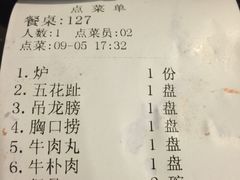 点菜单
餐桌:127
人数:1 点菜员:02
点菜:09-05 17:32
1.炉 1 份
2.五花趾 1 盘
3.吊龙膀 1 盘
4.胸口捞 1 盘
5.牛肉丸 1 盘
6.牛朴肉 1 盘